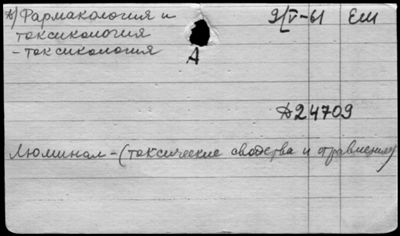 Фармакология и 9/V-61 ЕМ
токсикология
-токсикология
А
Д24709
Люминал-(токсические свойства и отравление)